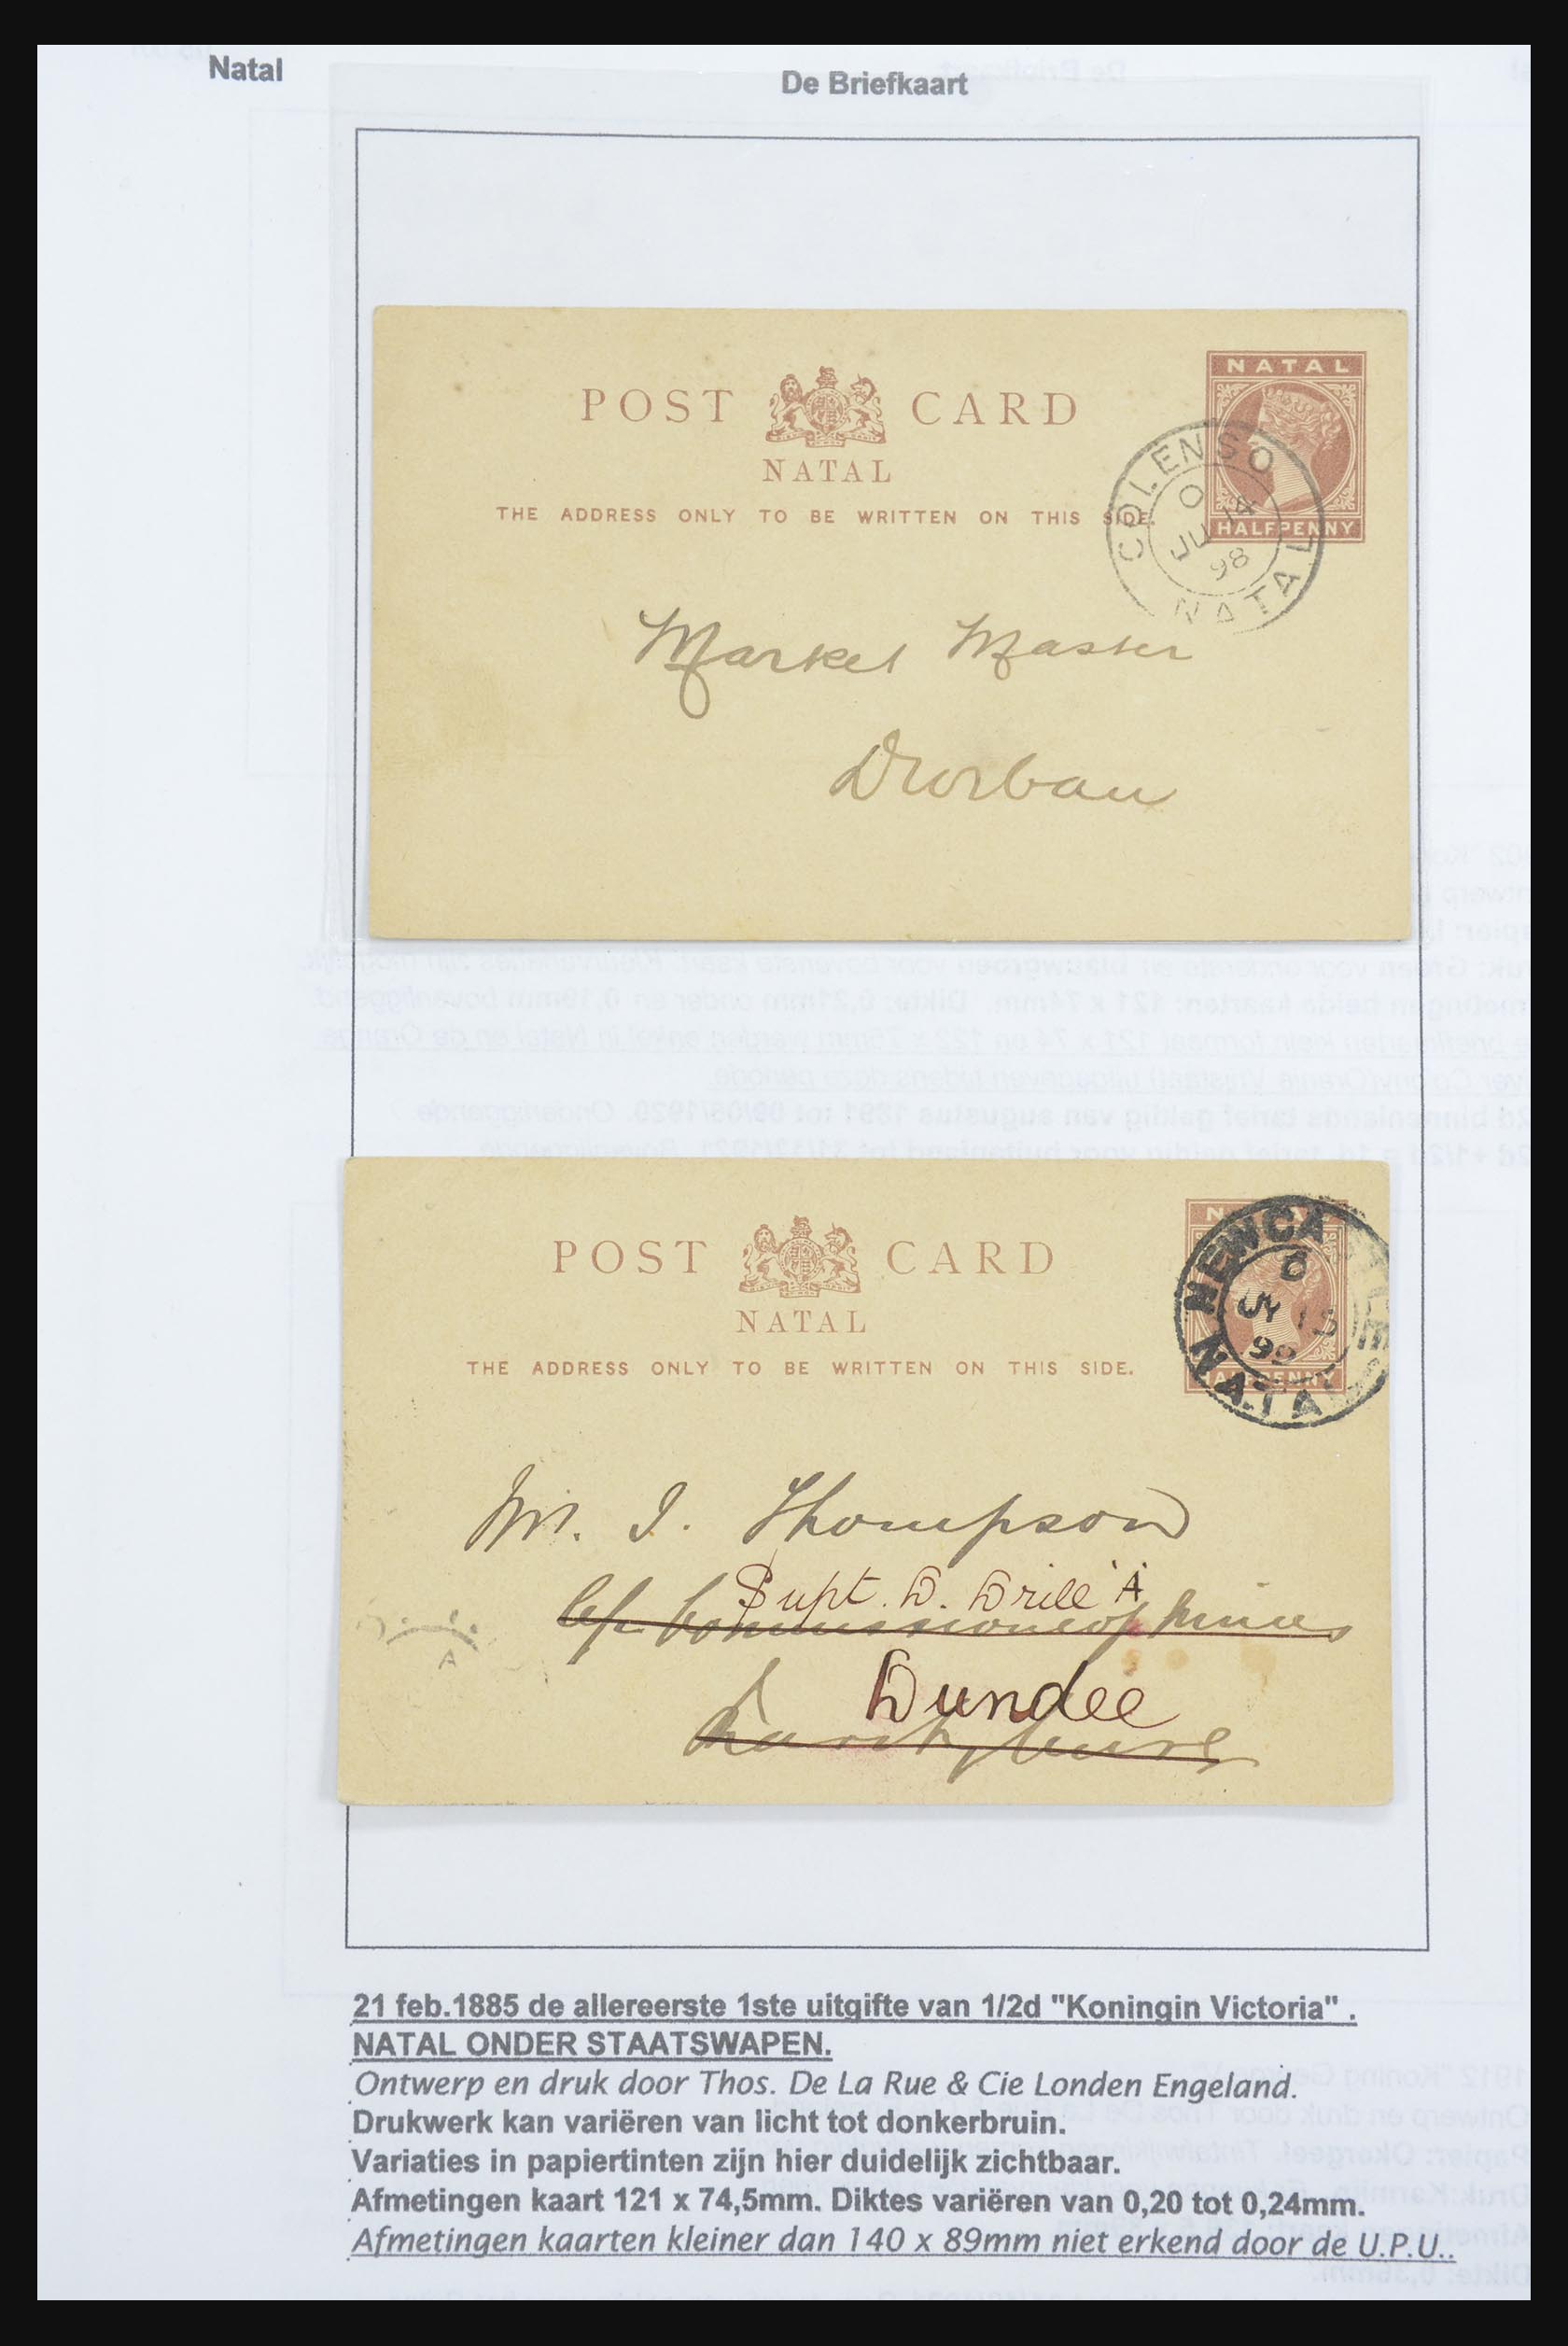 Natal
De Briefkaart
POST CARD
NATAL
THE ADDRESS ONLY TO BE WRITTEN ON THIS SIDE
NATAL
HALFPENNY
COLENSO
O
JU 14
98
NATAL
Market Master
Durban
POST CARD
NATAL
THE ADDRESS ONLY TO BE WRITTEN ON THIS SIDE.
HALFPENNY
JY 15
99
NATAL
Mr. J. Thompson
Supt. D. Drill A
c/o Commissioner of Mines
Dundee
21 feb.1885 de allereerste 1ste uitgifte van 1/2d "Koningin Victoria" .
NATAL ONDER STAATSWAPEN.
Ontwerp en druk door Thos. De La Rue & Cie Londen Engeland.
Drukwerk kan variëren van licht tot donkerbruin.
Variaties in papiertinten zijn hier duidelijk zichtbaar.
Afmetingen kaart 121 x 74,5mm. Diktes variëren van 0,20 tot 0,24mm.
Afmetingen kaarten kleiner dan 140 x 89mm niet erkend door de U.P.U..